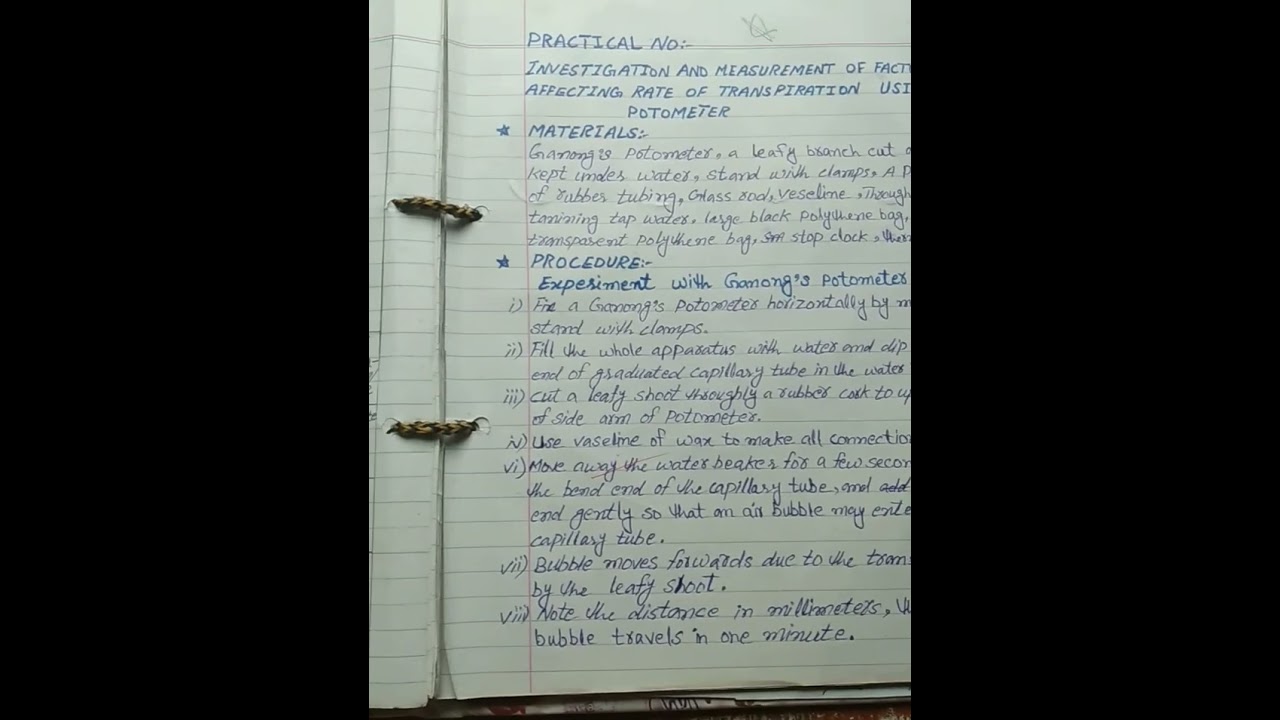 PRACTICAL NO:-
INVESTIGATION AND MEASUREMENT OF FACT
AFFECTING RATE OF TRANSPIRATION USI
POTOMETER
★ MATERIALS:-
Ganong's potometer, a leafy branch cut
kept under water, stand with clamps, A P
of rubber tubing, Glass rod, Veseline, Through
tanining tap water, large black polythene bag,
transparent polythene bag, stop clock, ther
★ PROCEDURE:-
Experiment with Ganong's potometer
i) Fix a Ganong's Potometer horizontally by m
stand with clamps.
ii) Fill the whole apparatus with water and dip
end of graduated capillary tube in the water
iii) Cut a leafy shoot throughly a rubber cork to up
of side arm of Potometer.
iv) Use vaseline of wax to make all connection
vi) Move away the water beaker for a few secon
the bend end of the capillary tube, and add
end gently so that an air bubble may ente
capillary tube.
vii) Bubble moves forwards due to the trans
by the leafy shoot.
viii) Note the distance in millimeters, th
bubble travels in one minute.